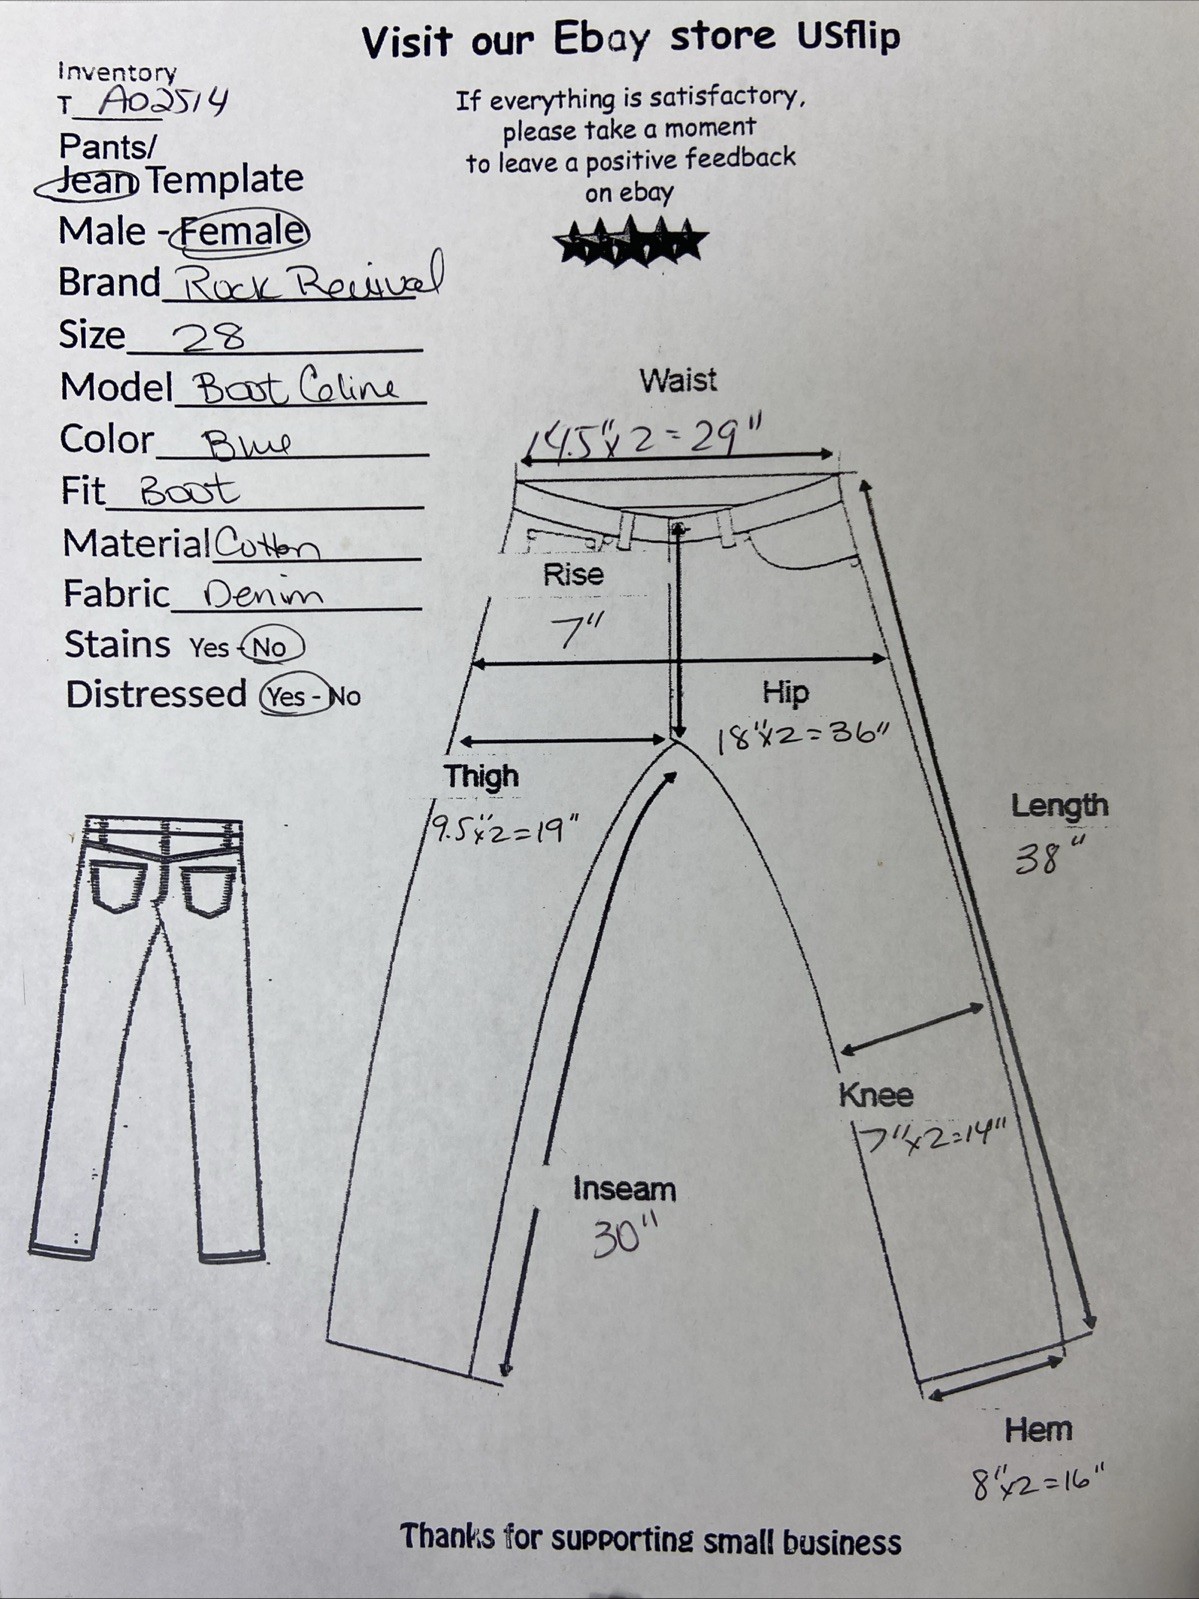 Visit our Ebay store USflip
Inventory
T A02514
Pants/
Jean Template
Male - Female
Brand Rock Revival
Size 28
Model Boot Celine
Color Blue
Fit Boot
Material Cotton
Fabric Denim
Stains Yes - No
Distressed Yes - No
If everything is satisfactory,
please take a moment
to leave a positive feedback
on ebay
Waist
14.5"x2=29"
Rise
7"
Hip
18"x2=36"
Thigh
9.5"x2=19"
Length
38"
Knee
7"x2=14"
Inseam
30"
Hem
8"x2=16"
Thanks for supporting small business